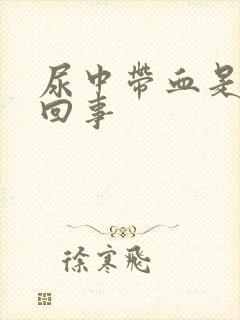 尿中带血是
回事
徐寒飛